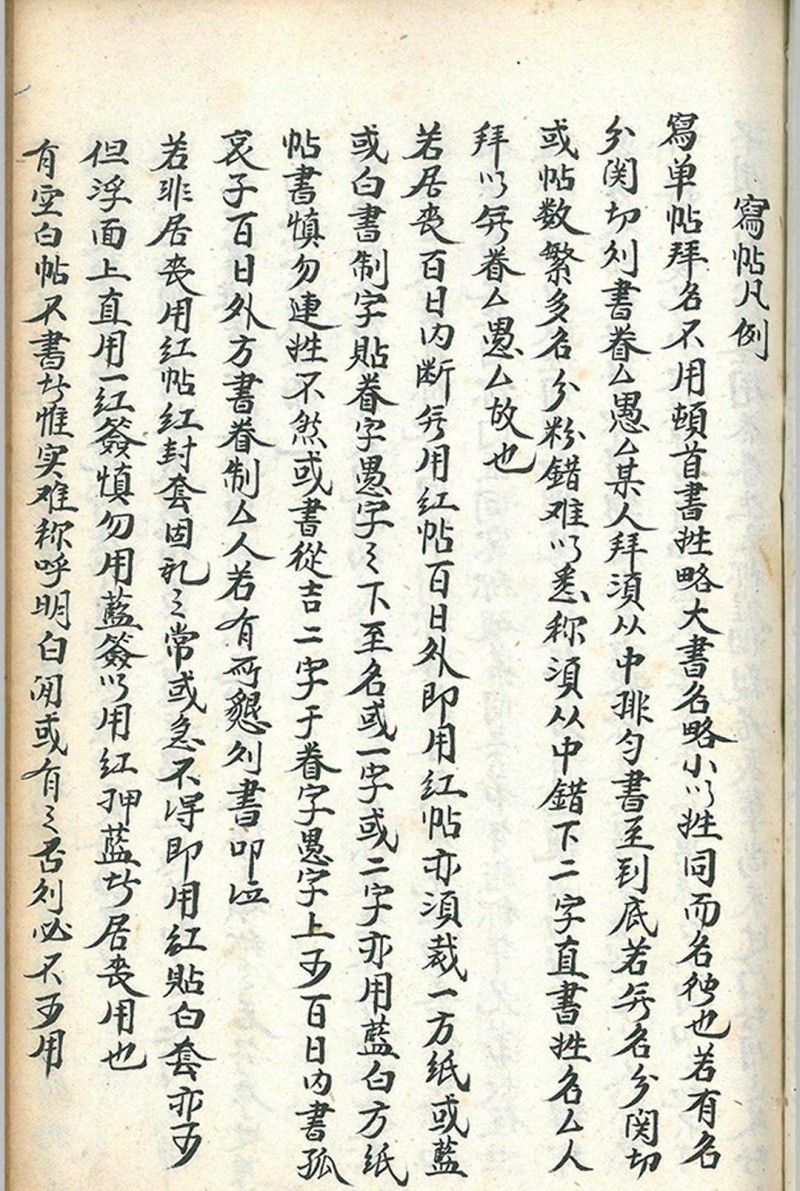 寫帖凡例
寫单帖拜名不用頓首書姓略大書名略小以姓同而名独也若有名
分関切列書眷厶愚厶某人拜須从中排勻書至到底若無名分関切
或帖数繁多名分粉錯难以悉称須从中錯下二字直書姓名厶人
拜以無眷厶愚厶故也
若居丧百日内断無用红帖百日外即用红帖亦須裁一方紙或藍
或白書制字貼眷字愚字之下至名或一字或二字亦用藍白方紙
帖書慎勿連姓不然或書從吉二字于眷字愚字上可百日内書孤
哀子百日外方書眷制厶人若有所懇列書叩泣
若非居丧用红帖红封套固礼之常或急不得即用红貼白套亦可
但浮面上直用一红簽慎勿用藍簽以用红押藍於居丧用也
有空白帖不書於惟实难称呼明白闬或有之否列必不可用